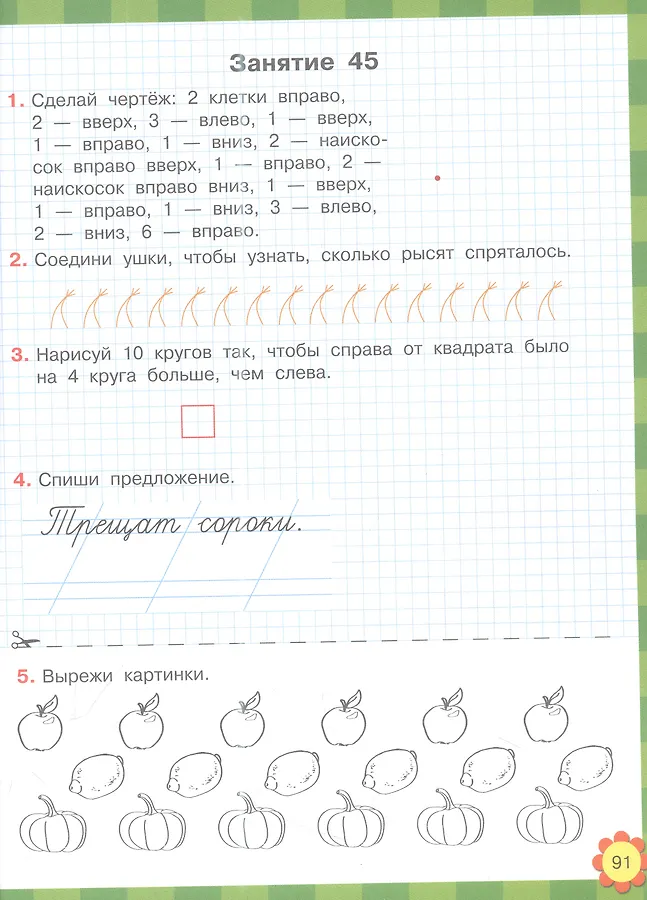 Занятие 45
1. Сделай чертёж: 2 клетки вправо,
2 — вверх, 3 — влево, 1 — вверх,
1 — вправо, 1 — вниз, 2 — наиско-
сок вправо вверх, 1 — вправо, 2 —
наискосок вправо вниз, 1 — вверх,
1 — вправо, 1 — вниз, 3 — влево,
2 — вниз, 6 — вправо.
2. Соедини ушки, чтобы узнать, сколько рысят спряталось.
3. Нарисуй 10 кругов так, чтобы справа от квадрата было
на 4 круга больше, чем слева.
4. Спиши предложение.
Трещат сороки.
5. Вырежи картинки.
91